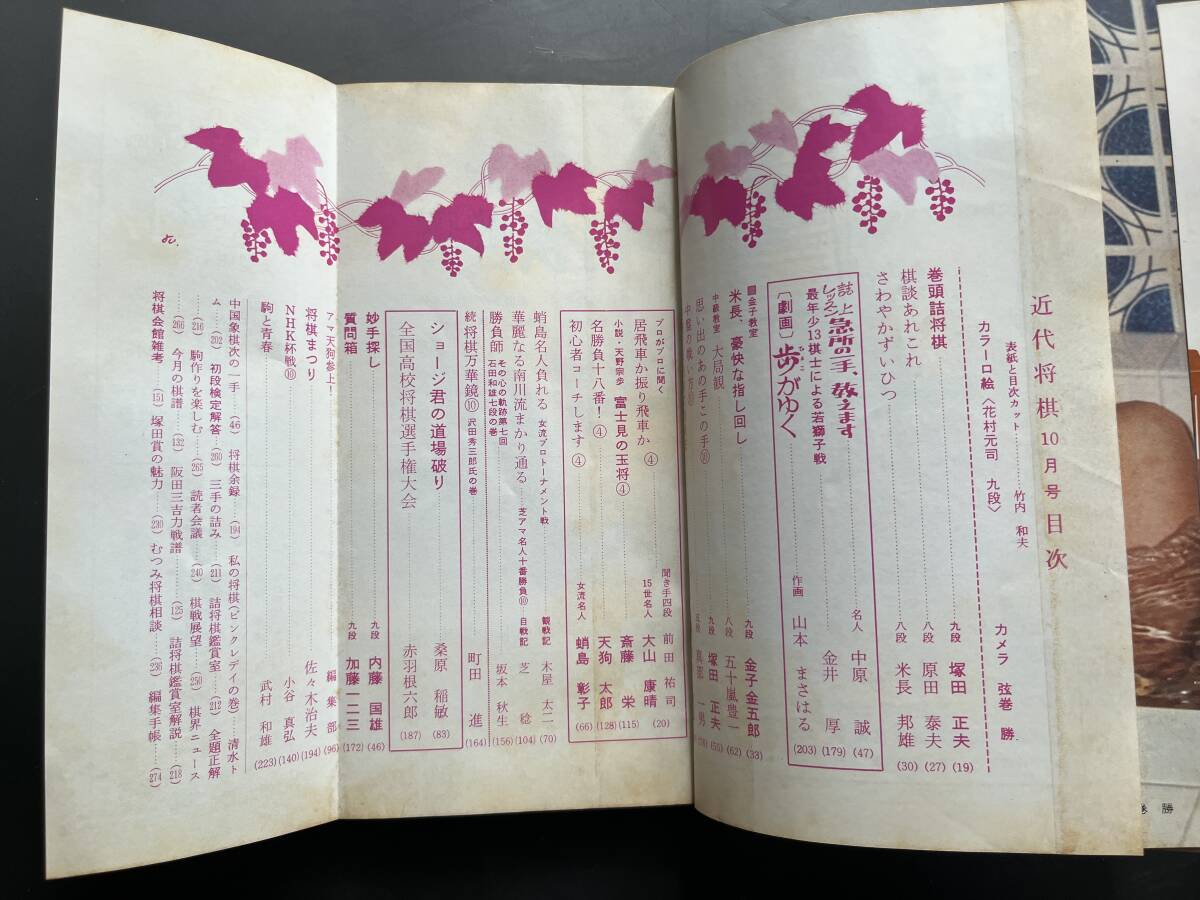 近代将棋10月号目次
表紙と目次カット 竹内 和夫
カラー口絵〈花村元司 九段〉 カメラ 弦巻 勝
巻頭詰将棋 九段 塚田 正夫 (19)
棋談あれこれ 八段 原田 泰夫 (27)
さわやかずいひつ 八段 米長 邦雄 (30)
誌上レッスン 急所の一手、教えます 名人 中原 誠 (47)
最年少13棋士による若獅子戦 金井 厚 (179)
〔劇画〕歩がゆく 作画 山本 まさはる (203)
金子教室
米長、豪快な指し回し 九段 金子 金五郎 (33)
中級教室 大局観 八段 五十嵐豊一 (62)
思い出のあの手この手⑩ 九段 塚田 正夫 (55)
中盤の戦い方 五段 真部 一男
プロがプロに聞く
居飛車か振り飛車か ④ 聞き手四段 前田 祐司 (20)
15世名人 大山 康晴
小説・天野宗歩 富士見の玉将④ 斎藤 栄 (115)
名勝負十八番! ④ 天狗 太郎 (128)
初心者コーチします ④ 女流名人 蛸島 彰子 (66)
蛸島名人負れる 女流プロトーナメント戦 観戦記 木屋 太二 (70)
華麗なる南川流まかり通る 芝アマ名人十番勝負⑩ 自戦記 芝 稔 (104)
勝負師 その心の軌跡第七回 石田和雄七段の巻 坂本 秋生 (156)
続 将棋万華鏡⑩ 沢田秀三郎氏の巻 町田 進 (164)
ショージ君の道場破り 桑原 稲敏 (83)
全国高校将棋選手権大会 赤羽根六郎 (187)
妙手探し 九段 内藤 国雄 (46)
質問箱 九段 加藤 一二三 (172)
アマ天狗参上! 編集部 (96)
将棋まつり 佐々木治夫 (194)
NHK杯戦⑩ 小谷 真弘 (140)
駒と青春 武村 和雄 (223)
中国象棋次の一手 (46) 将棋余録 (194) 私の将棋(ピンクレディの巻) 清水ト
ム (202) 初段検定解答 (260) 三手の詰み (211) 詰将棋鑑賞室 (212) 全題正解
(216) 駒作りを楽しむ (265) 読者会議 (240) 棋戦展望 (250) 棋界ニュース
(266) 今月の棋譜 (132) 阪田三吉力戦譜 (125) 詰将棋鑑賞室解説 (218)
将棋会館雑考 (151) 塚田賞の魅力 (230) むつみ将棋相談 (236) 編集手帳 (274)
巻 勝